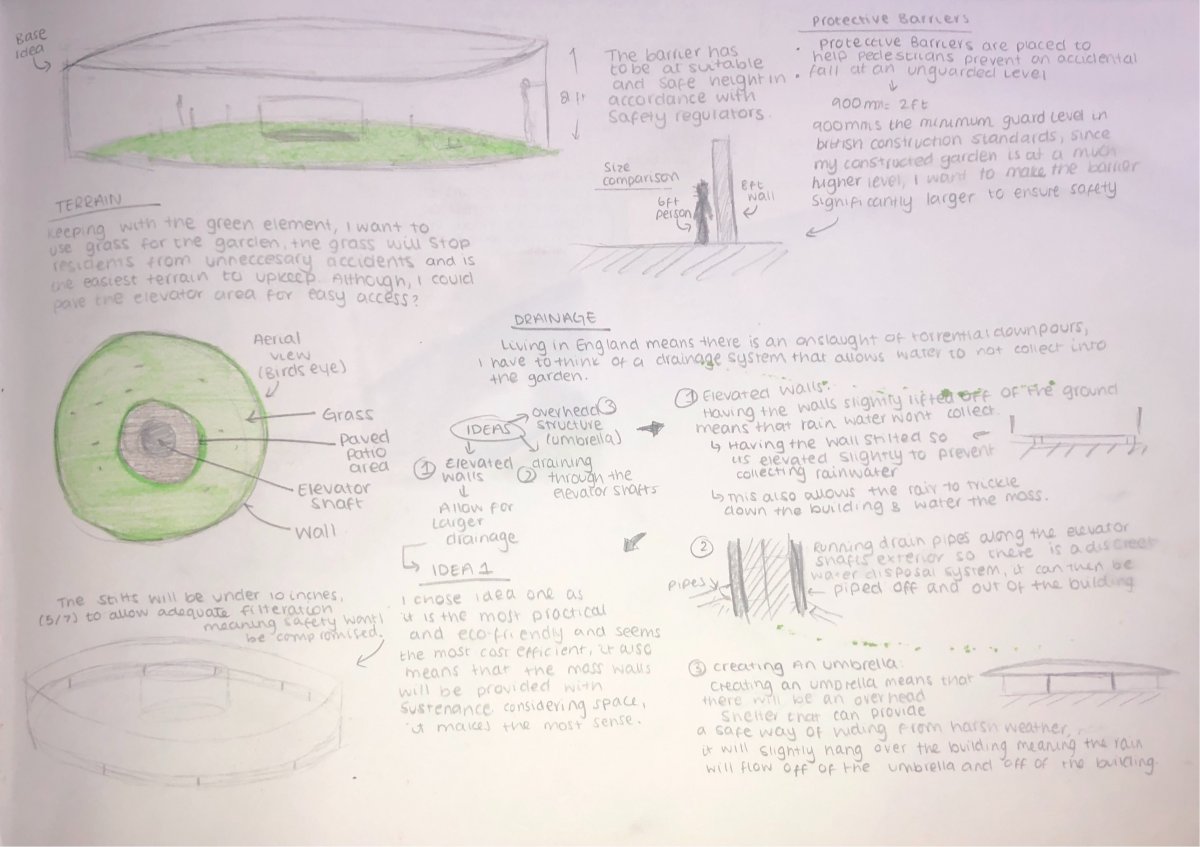 Base
idea
8ft
The barrier has
to be at suitable
and safe height in
accordance with
safety regulators.
Size
comparison
6ft
person
8ft
wall
Protective Barriers
• Protective Barriers are placed to
help pedestrians prevent an accidental
• fall at an unguarded level
900mm= 2ft
900mm is the minimum guard level in
british construction standards, since
my constructed garden is at a much
higher level, I want to make the barrier
significantly larger to ensure safety
TERRAIN
Keeping with the green element, I want to
use grass for the garden, the grass will stop
residents from unneccesary accidents and is
the easiest terrain to upkeep. Although, I could
pave the elevator area for easy access?
Aerial
view
(Birds eye)
Grass
paved
patio
area
Elevator
shaft
Wall
DRAINAGE
Living in England means there is an onslaught of torrential downpours,
I have to think of a drainage system that allows water to not collect into
the garden.
IDEAS
overhead ③
structure
(umbrella)
① Elevated
walls
Allow for
larger
drainage
② draining
through the
elevator shafts
① Elevated walls:
Having the walls slightly lifted off of the ground
means that rain water wont collect
↳ Having the wall stilted so
its elevated slightly to prevent
collecting rainwater
↳ This also allows the rain to trickle
down the building & water the moss.
②
pipes
Running drain pipes along the elevator
shafts exterior so there is a discreet
water disposal system, it can then be
piped off and out of the building
③ creating An umbrella:
creating an umbrella means that
there will be an overhead
shelter that can provide
a safe way of hiding from harsh weather,
it will slightly hang over the building meaning the rain
will flow off of the umbrella and off of the building.
IDEA 1
I chose idea one as
it is the most practical
and eco-friendly and seems
the most cost efficient, it also
means that the moss walls
will be provided with
sustenance considering space,
it makes the most sense.
The stilts will be under 10 inches,
(5/7) to allow adequate filteration
meaning safety wont
be compromised.